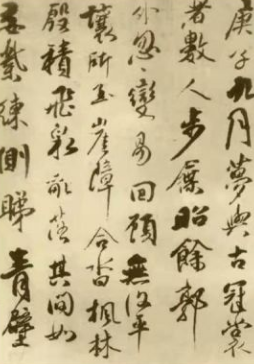 庚子九月夢與古冠裳
者數人步屧昭餘郭
外忽々變易回顧無復平
壤所立崖障合沓楓林
殷積飛彩其間如
練側睇青壁